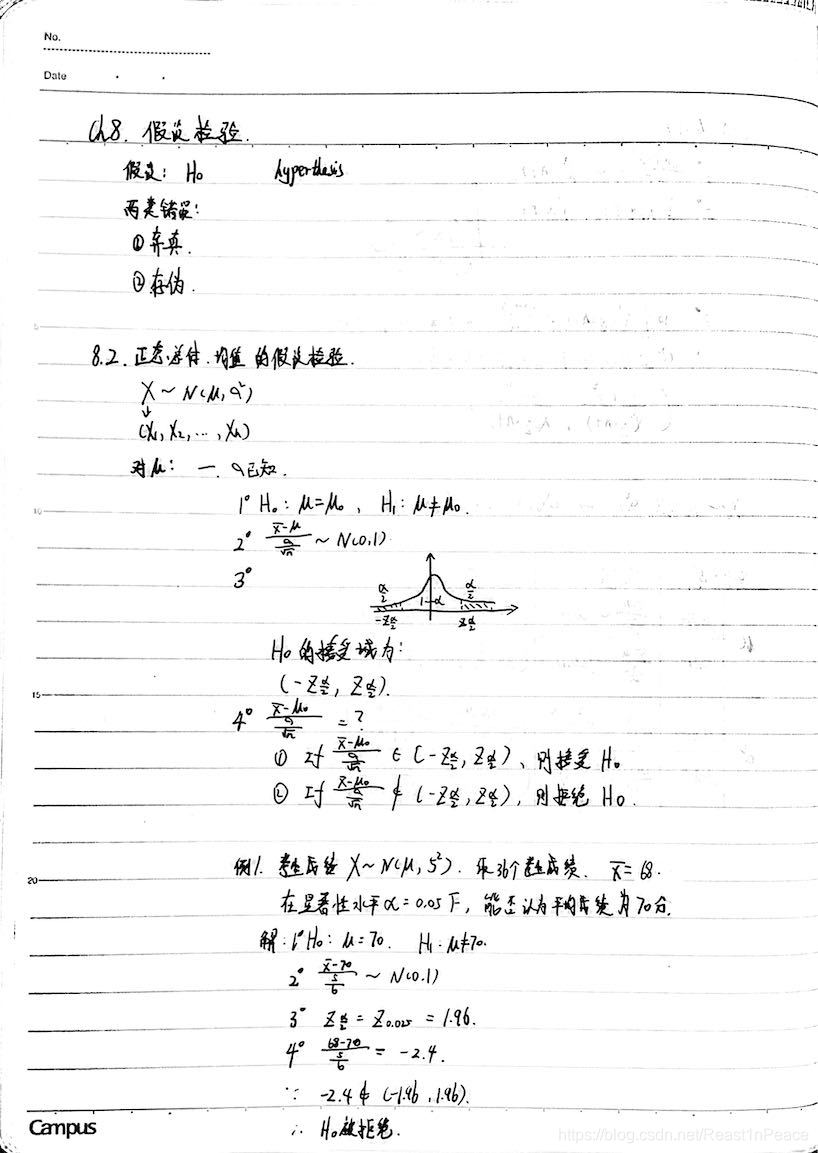 No.
Date
Ch8. 假设检验.
假设: H₀ hyperthesis
两类错误:
① 弃真.
② 存伪.
8.2. 正态总体.均值 的假设检验.
X ~ N(μ, σ²)
↓
(X₁, X₂, ..., Xₙ)
对μ: 一. σ已知.
1° H₀: μ=μ₀, H₁: μ≠μ₀.
10
2° (x̄-μ)/(σ/√n) ~ N(0,1)
3°
α/2 1-α α/2
-Z_{α/2} Z_{α/2}
H₀ 的接受域为:
(-Z_{α/2}, Z_{α/2}).
15
4° (x̄-μ₀)/(σ/√n) = ?
① If (x̄-μ₀)/(σ/√n) ∈ (-Z_{α/2}, Z_{α/2}), 则接受 H₀
② If (x̄-μ₀)/(σ/√n) ∉ (-Z_{α/2}, Z_{α/2}), 则拒绝 H₀.
例1. 考生成绩 X~N(μ, 5²). 取36个考生成绩. x̄=68.
20
在显著性水平α=0.05下, 能否认为平均成绩为70分.
解: 1° H₀: μ=70. H₁: μ≠70.
2° (x̄-70)/(5/6) ~ N(0.1)
3° Z_{α/2} = Z_{0.025} = 1.96.
4° (68-70)/(5/6) = -2.4.
∵ -2.4 ∉ (-1.96, 1.96).
∴ H₀被拒绝.
Campus
https://blog.csdn.net/Reast1nPeace